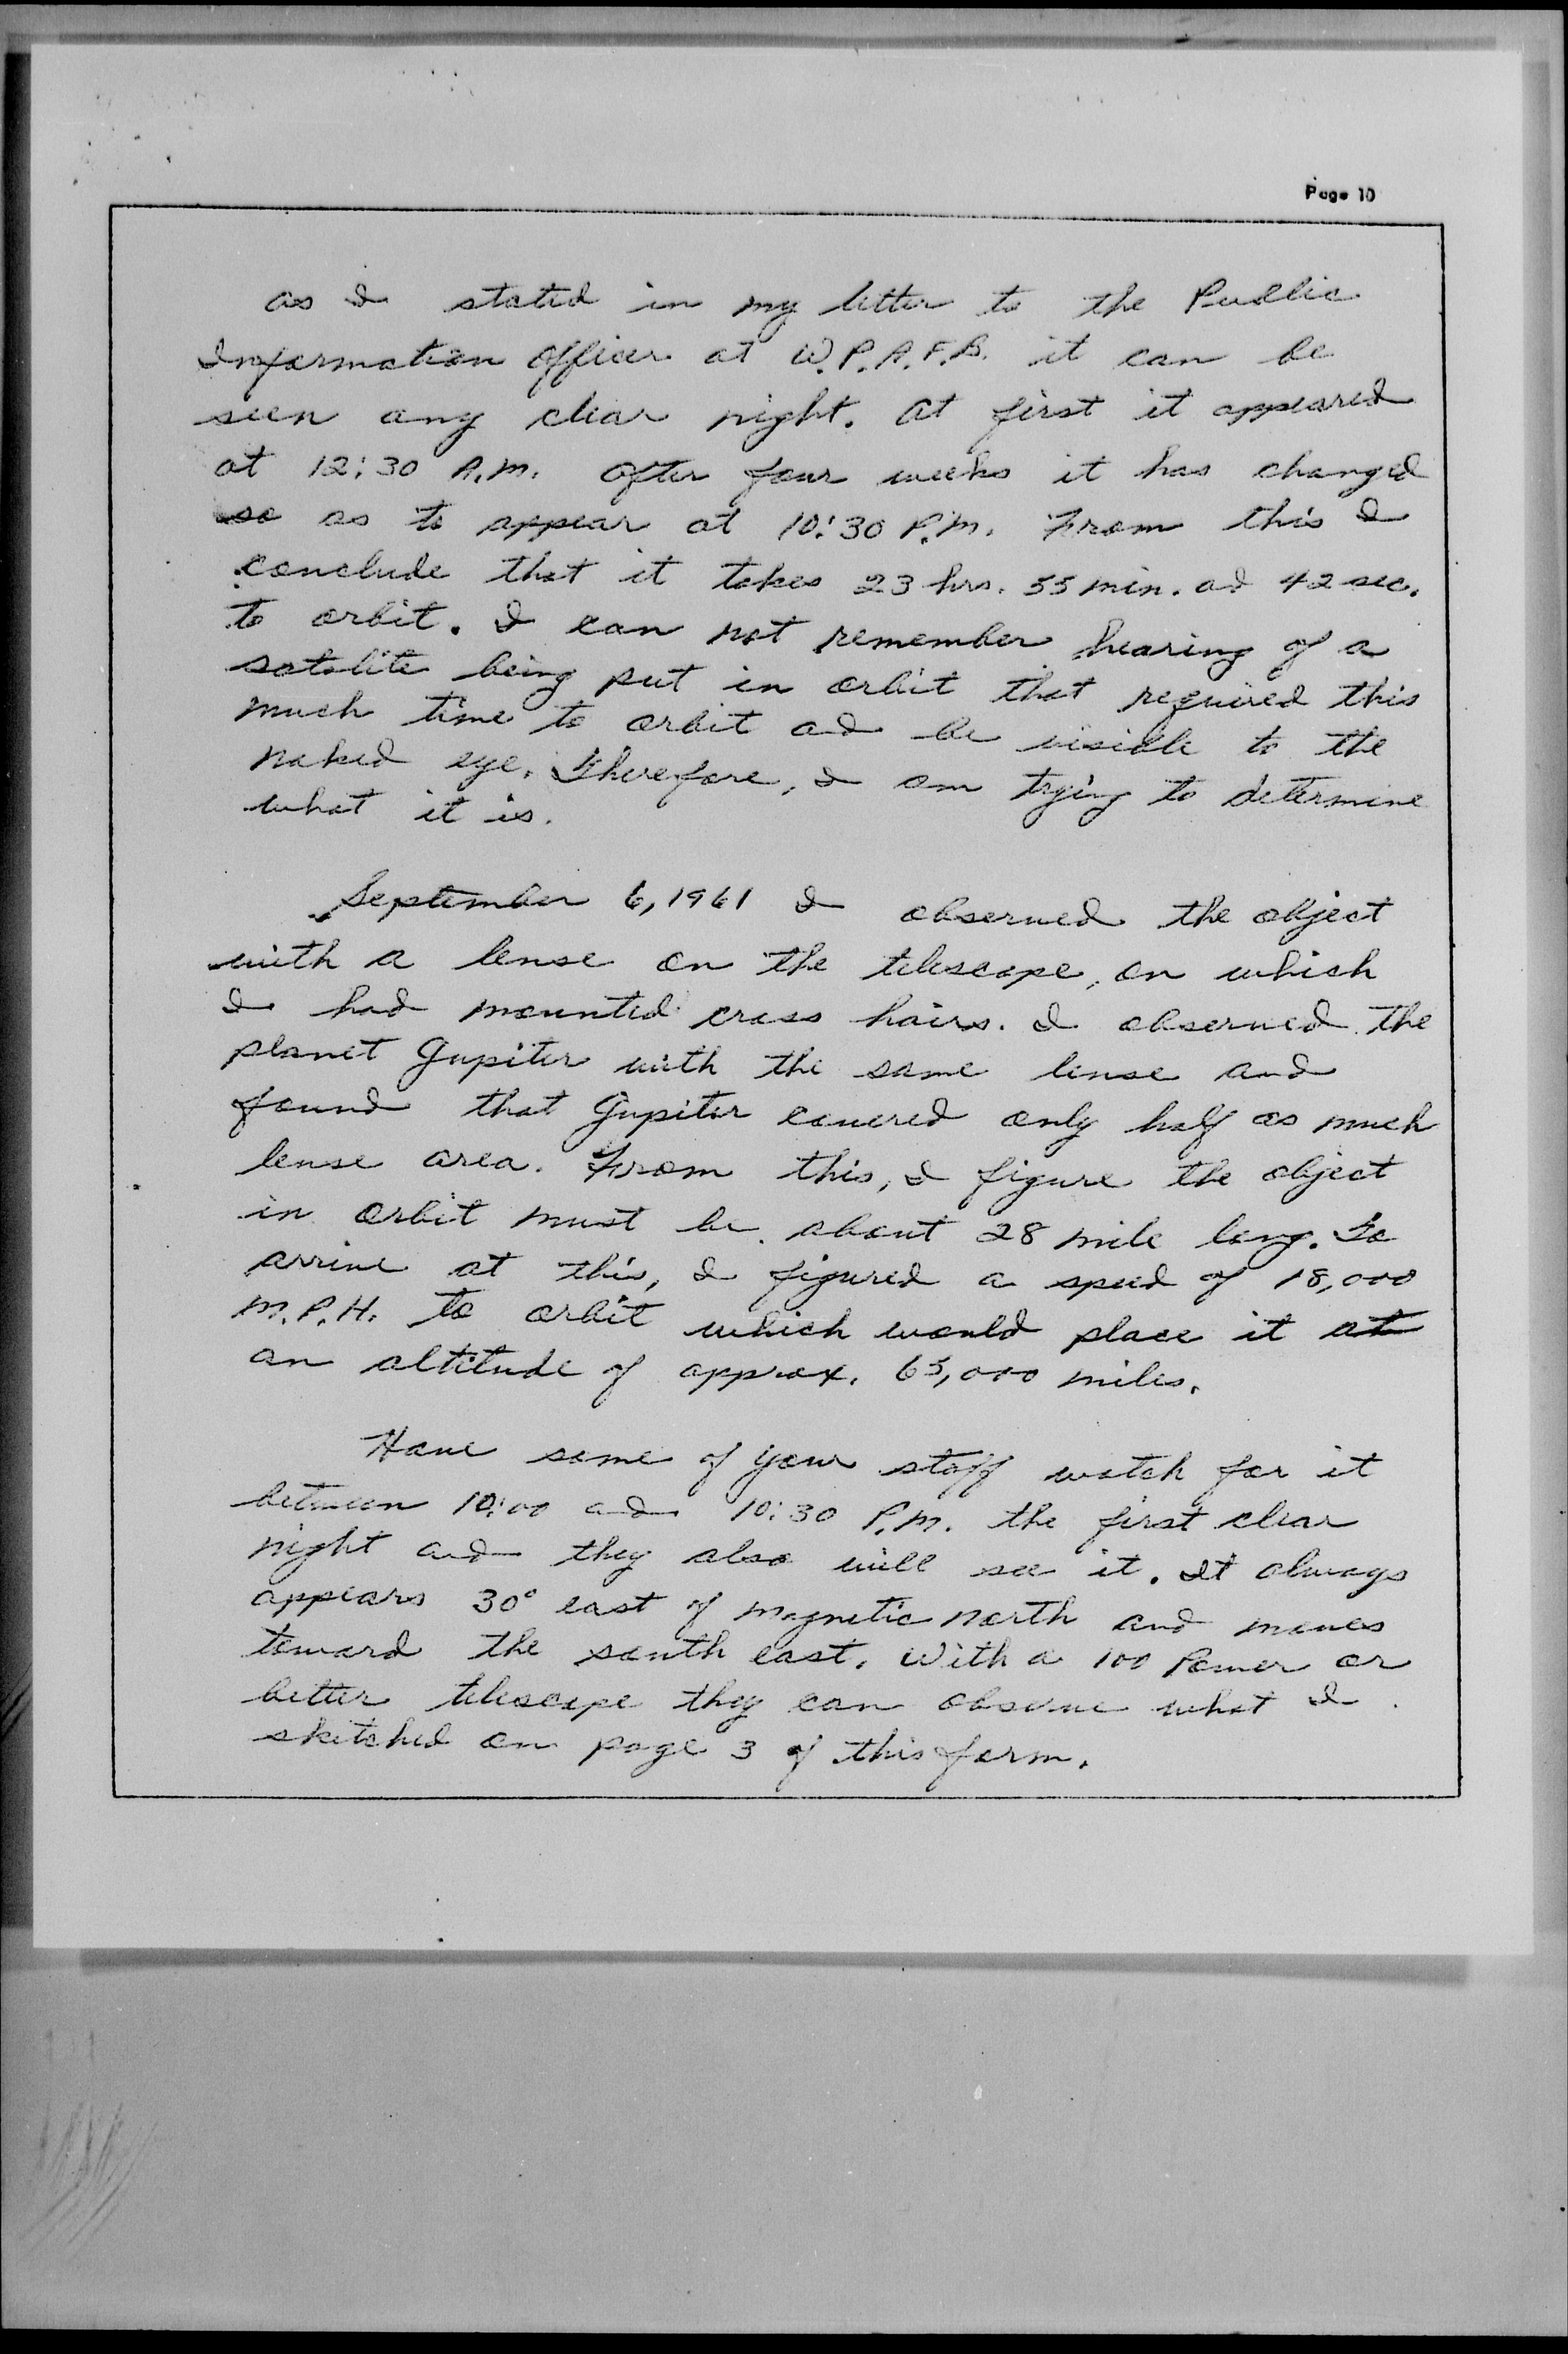 Page 10
as I stated in my letter to the Public
Information Officer at W.P.A.F.B. it can be
seen any clear night. At first it appeared
at 12:30 A.M. After four weeks it has changed
so as to appear at 10:30 P.M. From this I
conclude that it takes 23 hrs. 55 min. ad 42 sec.
to orbit. I can not remember hearing of a
satalite being put in orbit that required this
much time to orbit ad be visible to the
naked eye. Therefore, I am trying to determine
what it is.
September 6, 1961 I observed the object
with a lense on the telescope, on which
I had mounted cross hairs. I observed the
planet Jupiter with the same lense and
found that Jupiter covered only half as much
lense area. From this, I figure the object
in orbit must be about 28 mile long. To
arrive at this, I figured a speed of 18,000
M.P.H. to orbit which would place it at
an altitude of approx. 65,000 miles.
Have some of your staff watch for it
between 10:00 and 10:30 P.M. the first clear
night and they also will see it. It always
appears 30° east of magnetic north and moves
toward the south east. With a 100 Power or
better telescope they can observe what I
sketched on page 3 of this form.